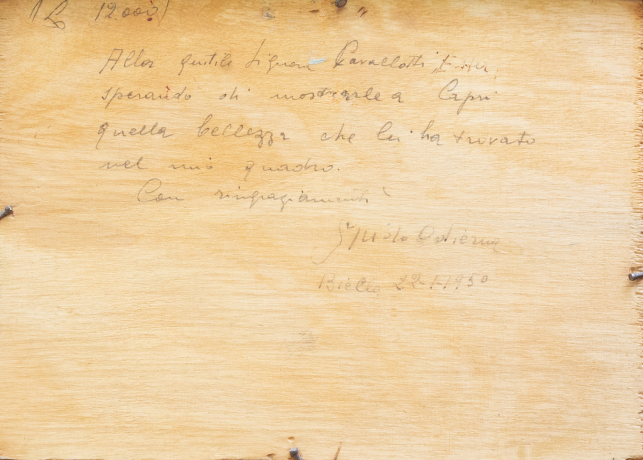 (£ 12.000)
Alla gentile Signora Cavallotti
sperando di mostrarle a Capri
quella bellezza che lei ha trovato
nel mio quadro.
Con ringraziamenti
Guido Odierna
Biella 22-1-1950